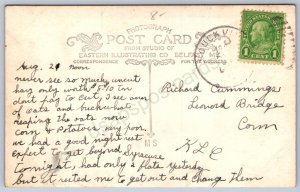 8-
PHOTOGRAPH
POST CARD
FROM STUDIO OF
EASTERN ILLUSTRATING CO. BELFAST, ME.
CORRESPONDENCE
FOR ADDRESS
1 CENT 1
Aug. 2 noon
never see so much uncut
hay only worth 5-10 Ton
don't pay to cut, I see any
of oats and buckwheat
reaping the oats now
corn & Potatoes very poor.
we had a good night out
Expect to get beyond Syracuse
tonight, had only a flat yesterday
but it rested me to get out and change them
Richard Cummings
Leonard Bridge
Conn
M S